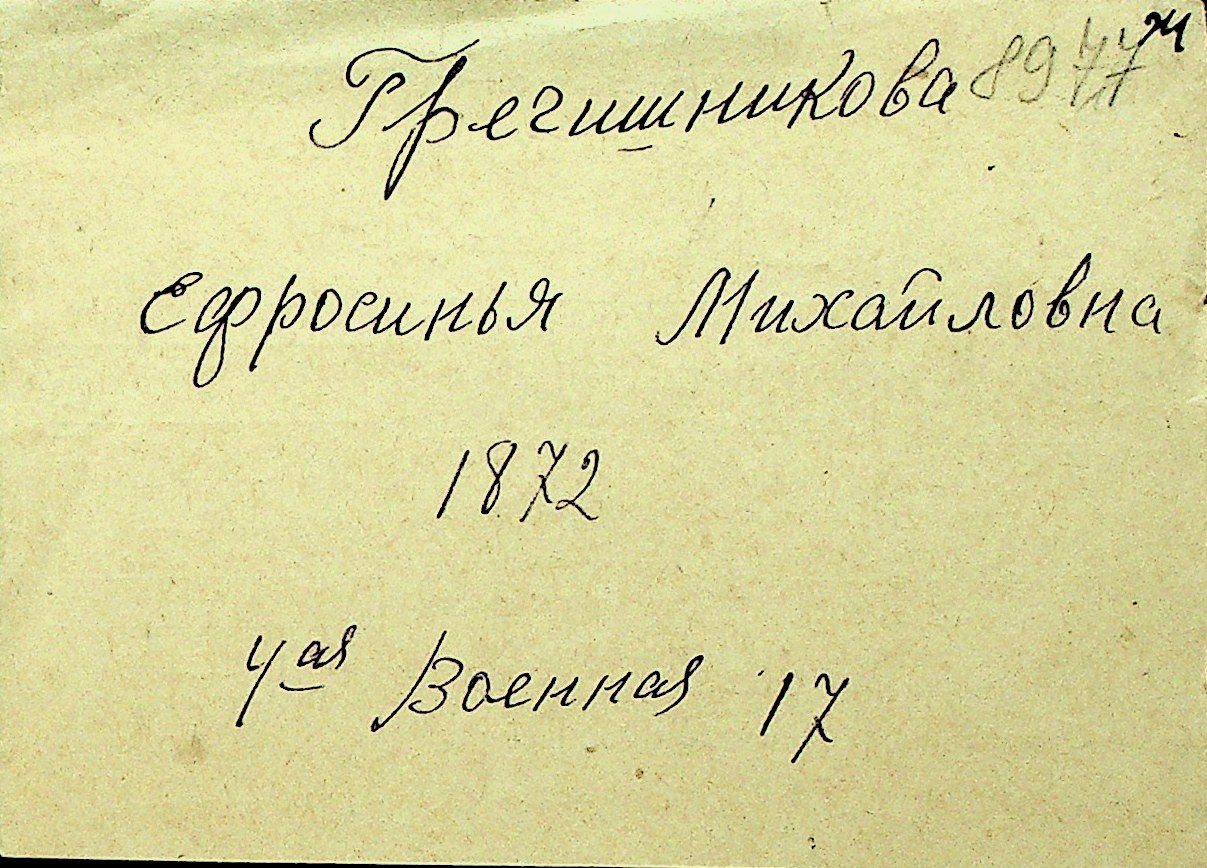 Гречишникова 8977 ж
Ефросинья Михайловна
1872
4ая Военная 17